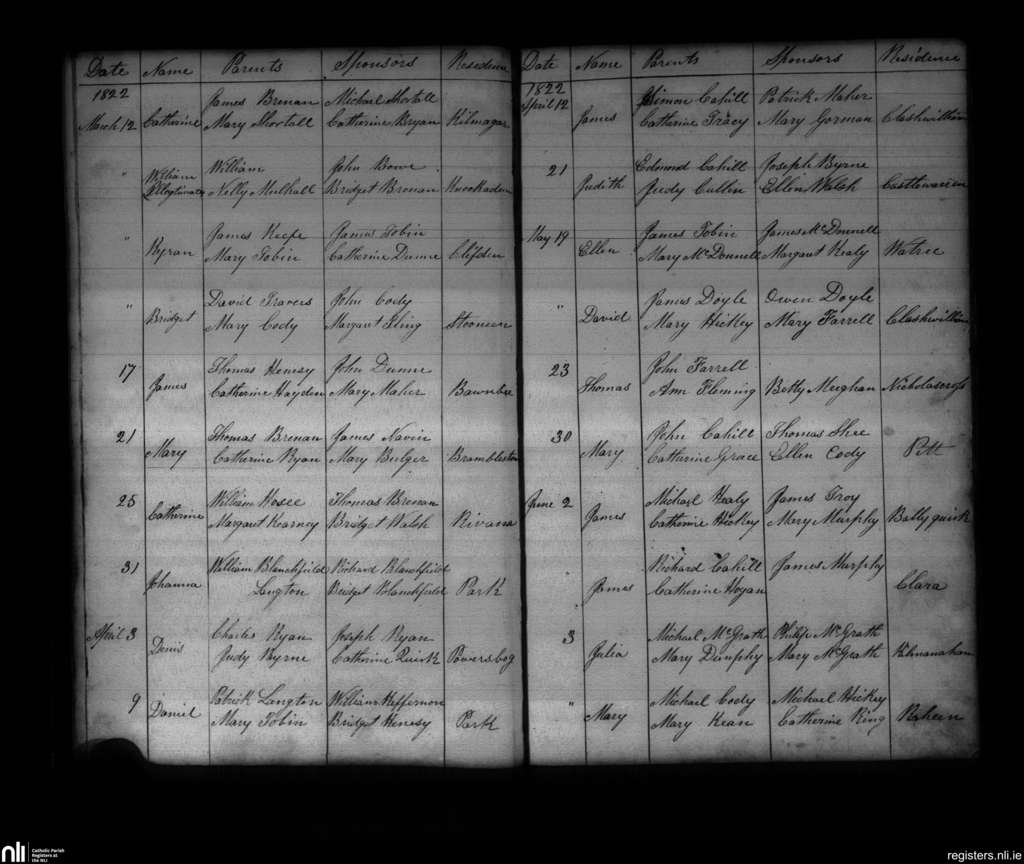 Date Name Parents Sponsors Residence
1822 James Brenan Michael Shortall
March 12 Catherine Mary Shortall Catherine Bryan Kilmagar
" William William John Bowe
Illegitimate Nelly Mulhall Bridget Brenan Knockadun
" James Keefe James Tobin
Byran Mary Tobin Catherine Dunne Clifden
" David Travers John Cody
Bridget Mary Cody Margaret Fling Stooneen
17 Thomas Henesy John Dunne
James Catherine Hayden Mary Maher
21 Thomas Brenan James Navin
Mary Catherine Ryan Mary Bulger Brambleston
25 William Thomas Brenan
Catherine Margaret Kearney Bridget Walsh Rivana
31 William Blanchfield Richard Blanchfield
Johanna Langton Bridget Blanchfield Park
April 3 Charles Ryan Joseph Ryan
Denis Judy Byrne Catherine Quirk Powersbog
9 Patrick Langton William Heffernon
Daniel Mary Tobin Bridget Henesy Park
Date Name Parents Sponsors Residence
1822
April 12 Simon Cahill Patrick Maher
James Catherine Tracy Mary Gorman Clashwilliam
21 Edmund Cahill Joseph Byrne
Judith Judy Cullen Ellen Walsh Castlewarren
May 19 James Tobin James McDonnell
Ellen Mary McDonnell Margaret Healy Watree
" James Doyle Owen Doyle
David Mary Hickey Mary Farrell Clashwilliam
23 John Farrell
Thomas Ann Fleming Betty Meeghan Nicholascross
30 John Cahill Thomas Shee
Mary Catherine Grace Ellen Cody Pitt
June 2 Michael Healy James Troy
James Catherine Hickey Mary Murphy Ballyquirk
Richard Cahill James Murphy
James Catherine Hogan Clara
3 Michael McGrath Philip McGrath
Julia Mary Dunphy Mary McGrath Kilmanahan
" Michael Cody Michael Hickey
Mary Mary Kean Catherine King Raheen
nli Catholic Parish
Registers at
the NLI
registers.nli.ie